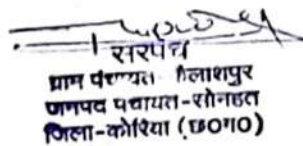 सरपंच
ग्राम पंचायत कैलाशपुर
जनपद पंचायत-सोनहत
जिला-कोरिया (छ०ग०)